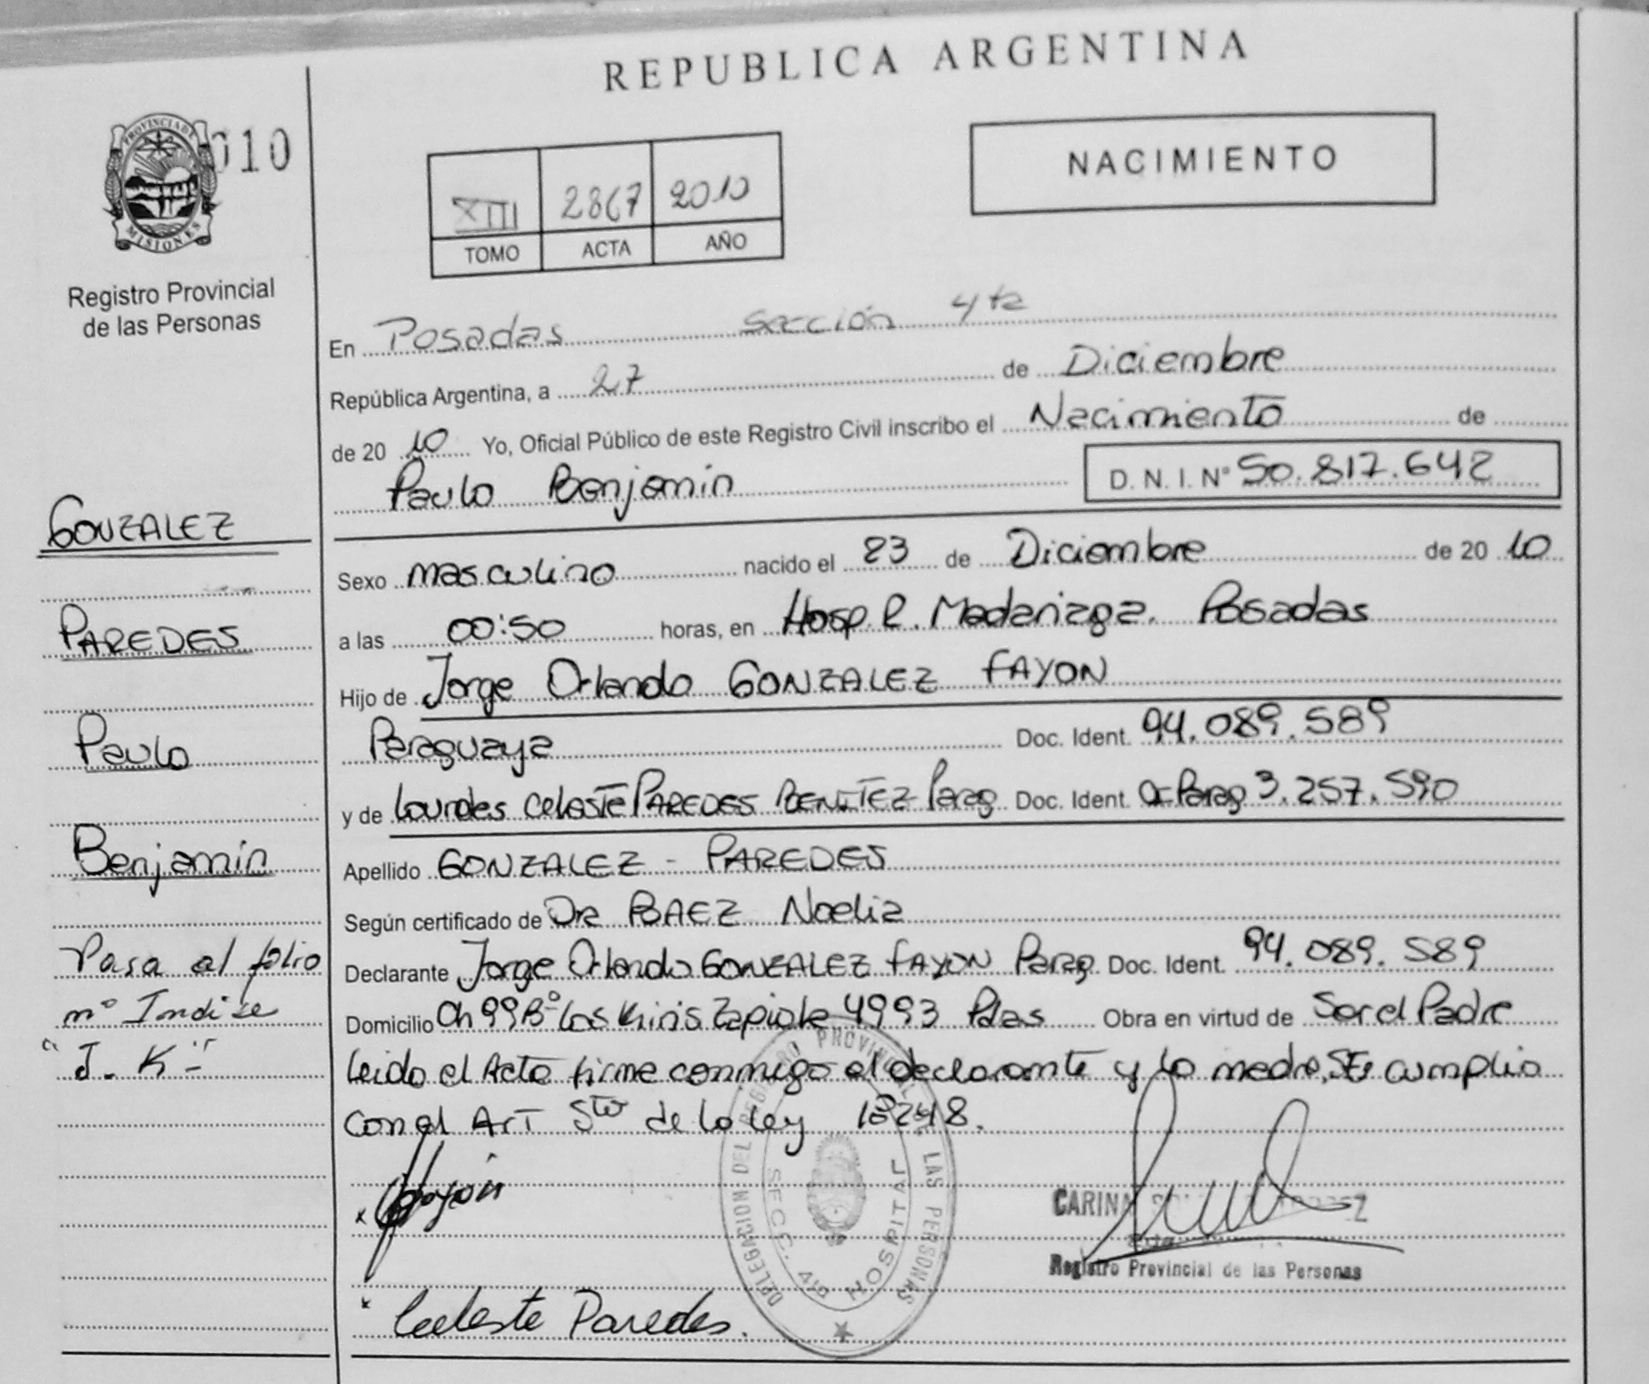 REPUBLICA ARGENTINA
PROVINCIA DE
MISIONES
010
Registro Provincial
de las Personas
XIII 2867 2010
TOMO ACTA AÑO
NACIMIENTO
En Posadas Sección 4ta
República Argentina, a 27 de Diciembre
de 20 10 Yo, Oficial Público de este Registro Civil inscribo el Nacimiento de
Paulo Benjamin D. N. I. Nº 50.817.642
Sexo masculino nacido el 23 de Diciembre de 20 10
a las 00:50 horas, en Hosp. R. Madariaga. Posadas
Hijo de Jorge Orlando GONZALEZ FAYON
Paraguaya Doc. Ident. 94.089.589
y de Lourdes Celeste PAREDES BENITEZ Parag Doc. Ident. Parag 3.257.590
Apellido GONZALEZ - PAREDES
Según certificado de Dra BAEZ Noelia
Declarante Jorge Orlando GONZALEZ FAYON Parag. Doc. Ident. 94.089.589
Domicilio Ch 99 Bº Los Kiris Zapiola 4993 Pdas Obra en virtud de Ser el Padre
Leido el Acta firma conmigo el declarante y la madre. Se cumplio
con el Art 5to de la ley 18248.
GONZALEZ
PAREDES
Paulo
Benjamin
Pasa al folio
nº Indice
"J - K"
Celeste Paredes.
DELEGACION DEL REGISTRO PROVINCIAL DE LAS PERSONAS
SECC. 4ta HOSPITAL
CARINA
Registro Provincial de las Personas